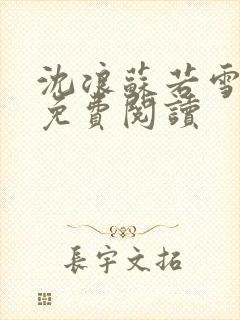 沈浪蘇若雪
免費閱讀
長宇文拓